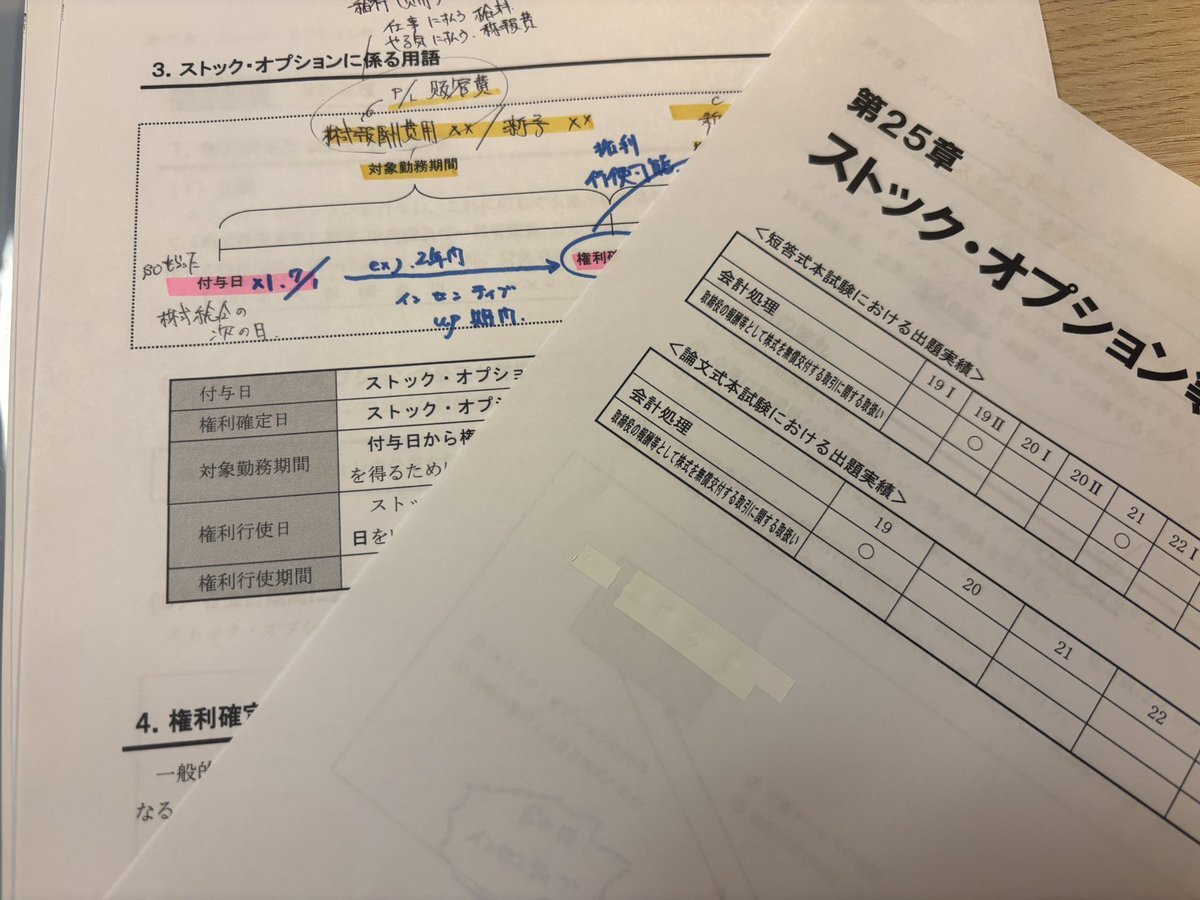 給料
仕事に払う 給料
やる気に払う 報酬費
3. ストック・オプションに係る用語
P/L 販管費
株式報酬費用 ×× / 新予 ××
対象勤務期間
権利
行使可能
付与日 ×1.7/1
ex) 2年間
権利確
インセンティブ
up 期間.
株式総会の
次の日.
付与日
ストック・オプショ
権利確定日
ストック・オプシ
対象勤務期間
付与日から権
を得るため
権利行使日
ストッ
日を
権利行使期間
4. 権利確定
一般的
なる
第25章
ストック・オプション等
<短答式本試験における出題実績>
19Ⅰ 19Ⅱ 20Ⅰ 20Ⅱ 21 22Ⅰ
会計処理 ○ ○
取締役の報酬等として株式を無償交付する取引に関する取扱い
<論文式本試験における出題実績>
19 20 21 22
会計処理 ○
取締役の報酬等として株式を無償交付する取引に関する取扱い